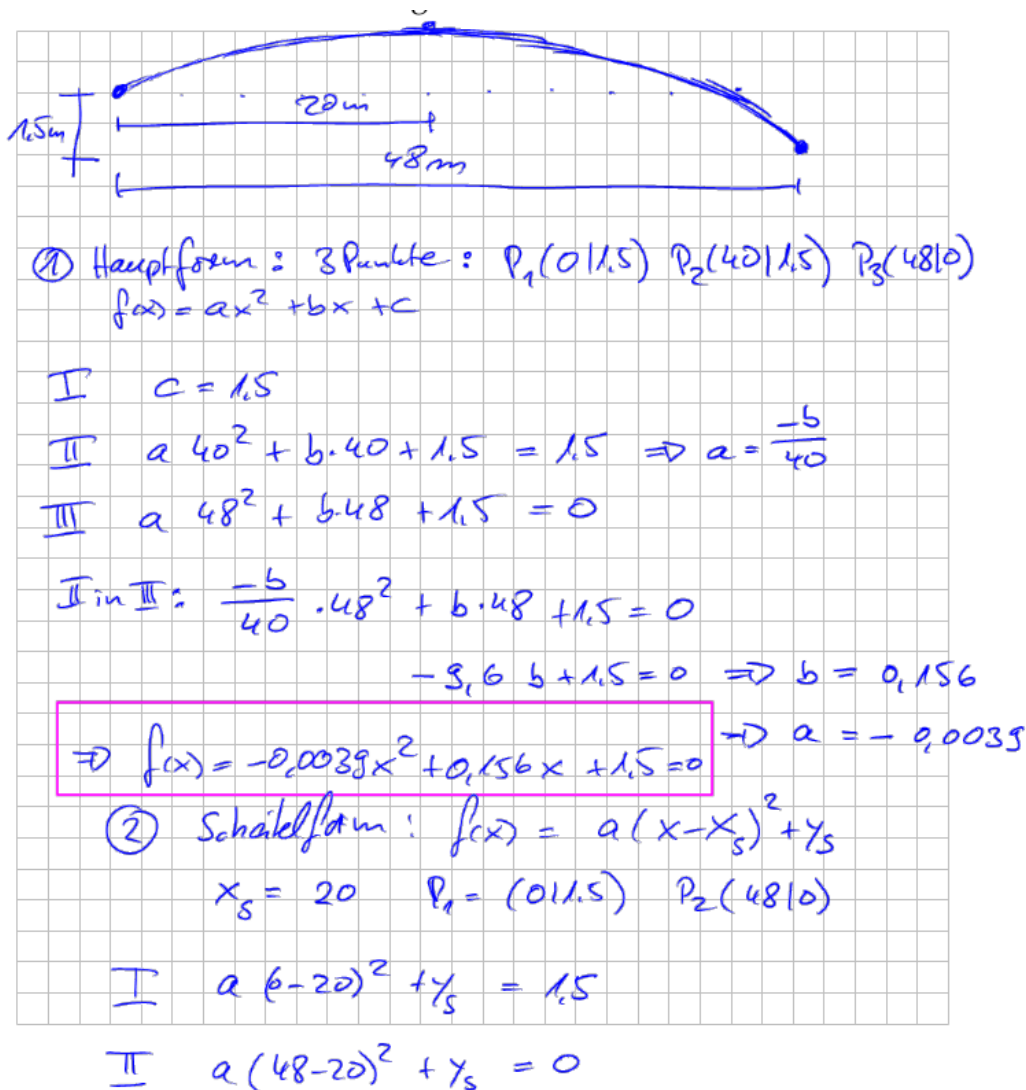 20m
1,5m
48m
① Hauptform: 3 Punkte: P₁(0|1.5) P₂(40|1.5) P₃(48|0)
f(x) = ax² + bx + c
I c = 1.5
II a 40² + b·40 + 1.5 = 1.5 ⇒ a = -b/40
III a 48² + b·48 + 1.5 = 0
II in III: -b/40 · 48² + b·48 + 1.5 = 0
-9,6 b + 1.5 = 0 ⇒ b = 0,156
⇒ a = -0,0039
⇒ f(x) = -0,0039x² + 0,156x + 1,5 = 0
② Scheitelform: f(x) = a(x-xₛ)² + yₛ
xₛ = 20 P₁ = (0|1.5) P₂(48|0)
I a (0-20)² + yₛ = 1.5
II a (48-20)² + yₛ = 0